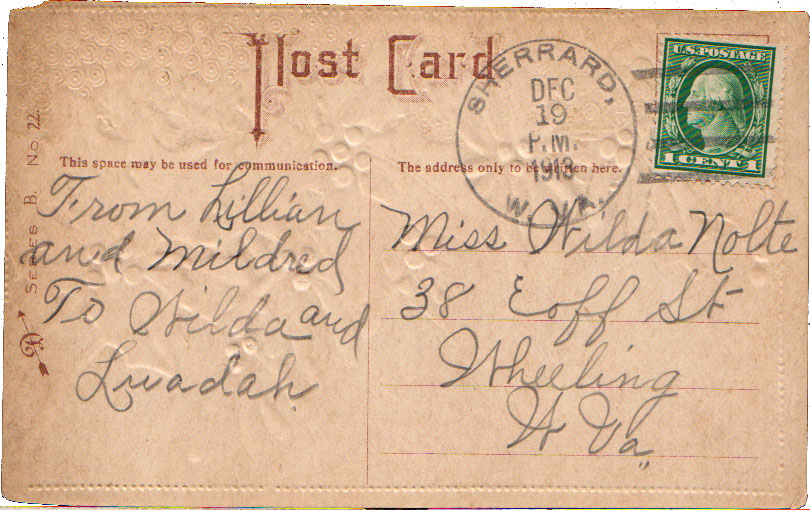 Post Card
SHERRARD,
DEC
19
P.M.
1913
W. VA.
U.S. POSTAGE
1 CENT 1
This space may be used for communication.
The address only to be written here.
SERIES B. No. 22.
From Lillian
and Mildred
To Wilda and
Luadah
Miss Wilda Nolte
38 Eoff St
Wheeling
W Va,,